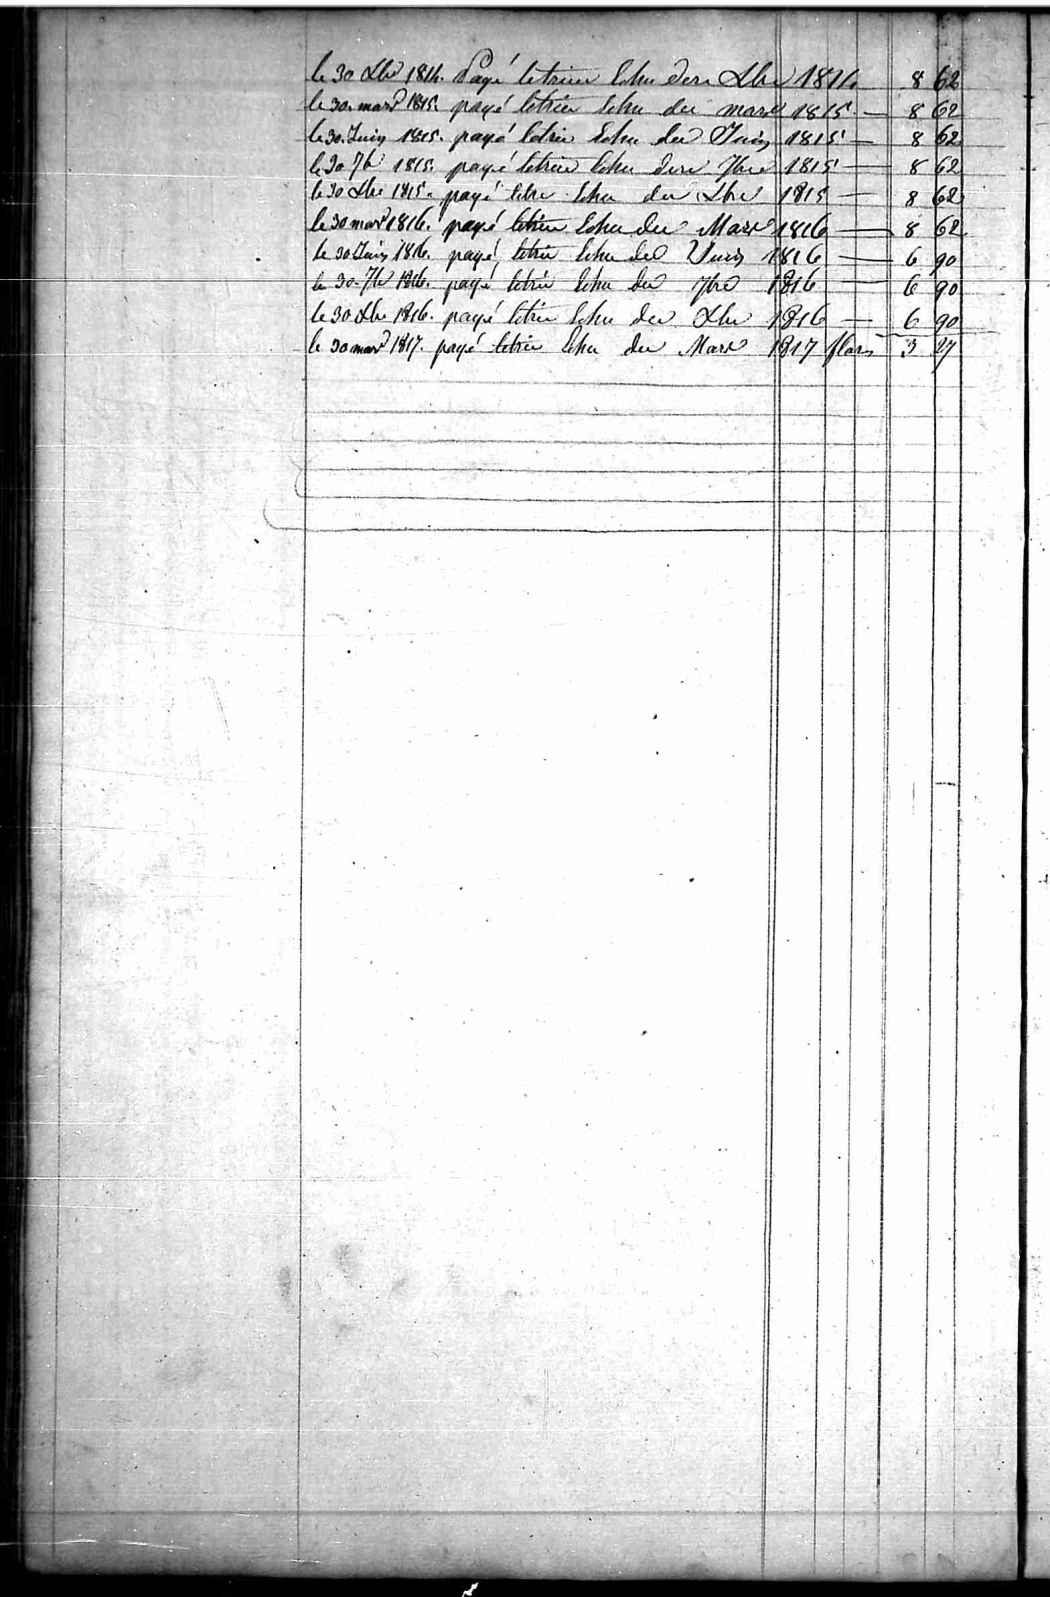 le 30 Xbre 1814. Payé letrim Echu den Xbre 1814 8 62
le 30 mars 1815. payé letrim Echu du mars 1815 — 8 62
le 30 Juin 1815. payé letrim Echu du Juin 1815 — 8 62
le 30 7b 1815. payé letrim Echu den 7bre 1815 — 8 62
le 30 Xbre 1815. payé letri Echu du Xbre 1815 — 8 62
le 30 mars 1816. payé letrim Echu du Mars 1816 — 8 62
le 30 Juin 1816. payé letrim Echu del Juin 1816 — 6 90
le 30. 7b 1816. payé letrim Echu du 7bre 1816 — 6 90
le 30 Xbre 1816. payé letrim Echu du Xbre 1816 — 6 90
le 30 mars 1817. payé letrim Echu du Mars 1817 florins 3 27